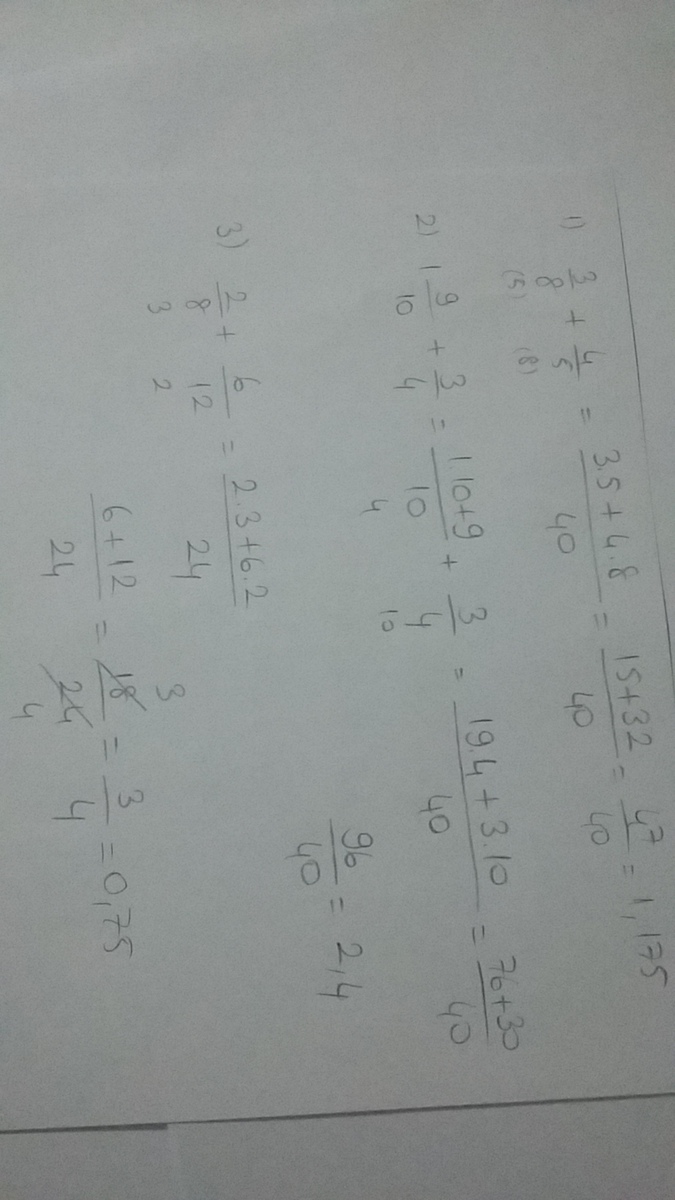 1) 3/8 + 4/5 = 3.5+4.8/40 = 15+32/40 = 47/40 = 1,175
(5) (8)
2) 1 9/10 + 3/4 = 1.10+9/10 + 3/4 = 19.4+3.10/40 = 76+30/40
4 10
96/40 = 2,4
3) 2/8 + 6/12 = 2.3+6.2/24
3 2
6+12/24 = 18/24 = 3/4 = 0,75
3
4